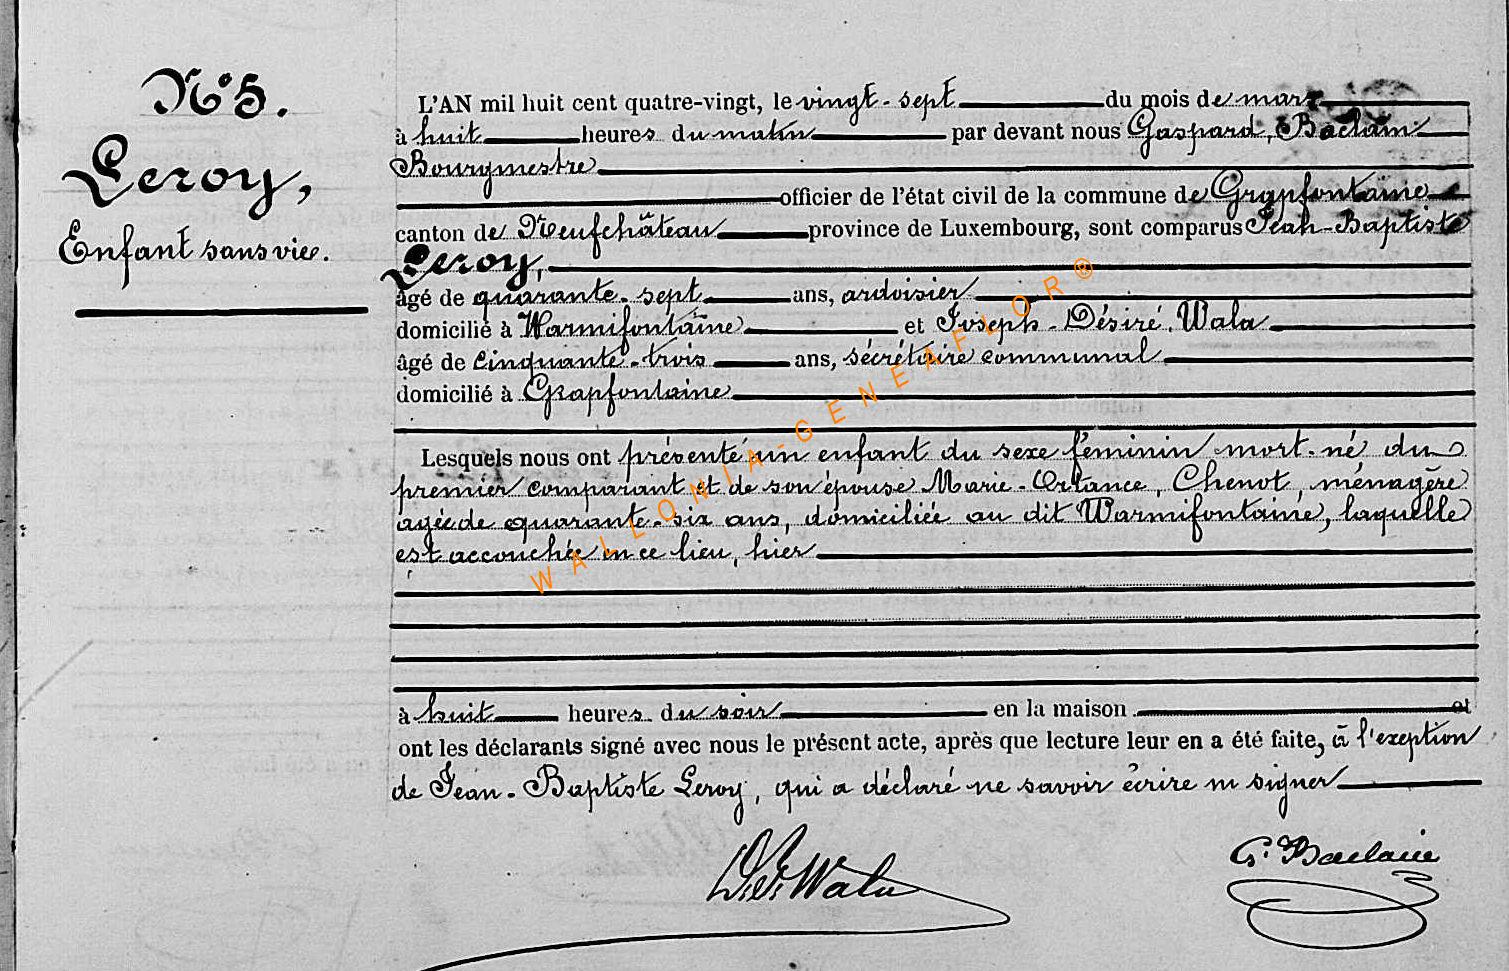 N° 5.
Leroy,
Enfant sans vie.
L'AN mil huit cent quatre-vingt, le vingt-sept du mois de mars
à huit heures du matin par devant nous Gaspard, Baclain
Bourgmestre
officier de l'état civil de la commune de Grapfontaine
canton de Neufchâteau province de Luxembourg, sont comparus Jean-Baptiste
Leroy,
âgé de quarante-sept ans, ardoisier
domicilié à Warmifontaine et Joseph-Désiré Wala
âgé de cinquante-trois ans, sécrétaire communal
domicilié à Grapfontaine
Lesquels nous ont présenté un enfant du sexe féminin mort-né du
premier comparant et de son épouse Marie-Ortance, Chenot, ménagère
agée de quarante-six ans, domiciliée au dit Warmifontaine, laquelle
est accouchée en ce lieu, hier
à huit heures du soir en la maison et
ont les déclarants signé avec nous le présent acte, après que lecture leur en a été faite, à l'exeption
de Jean-Baptiste Leroy, qui a déclaré ne savoir écrire ni signer
Wala
G. Baclain
WALLONIA-GENEAFLOR®